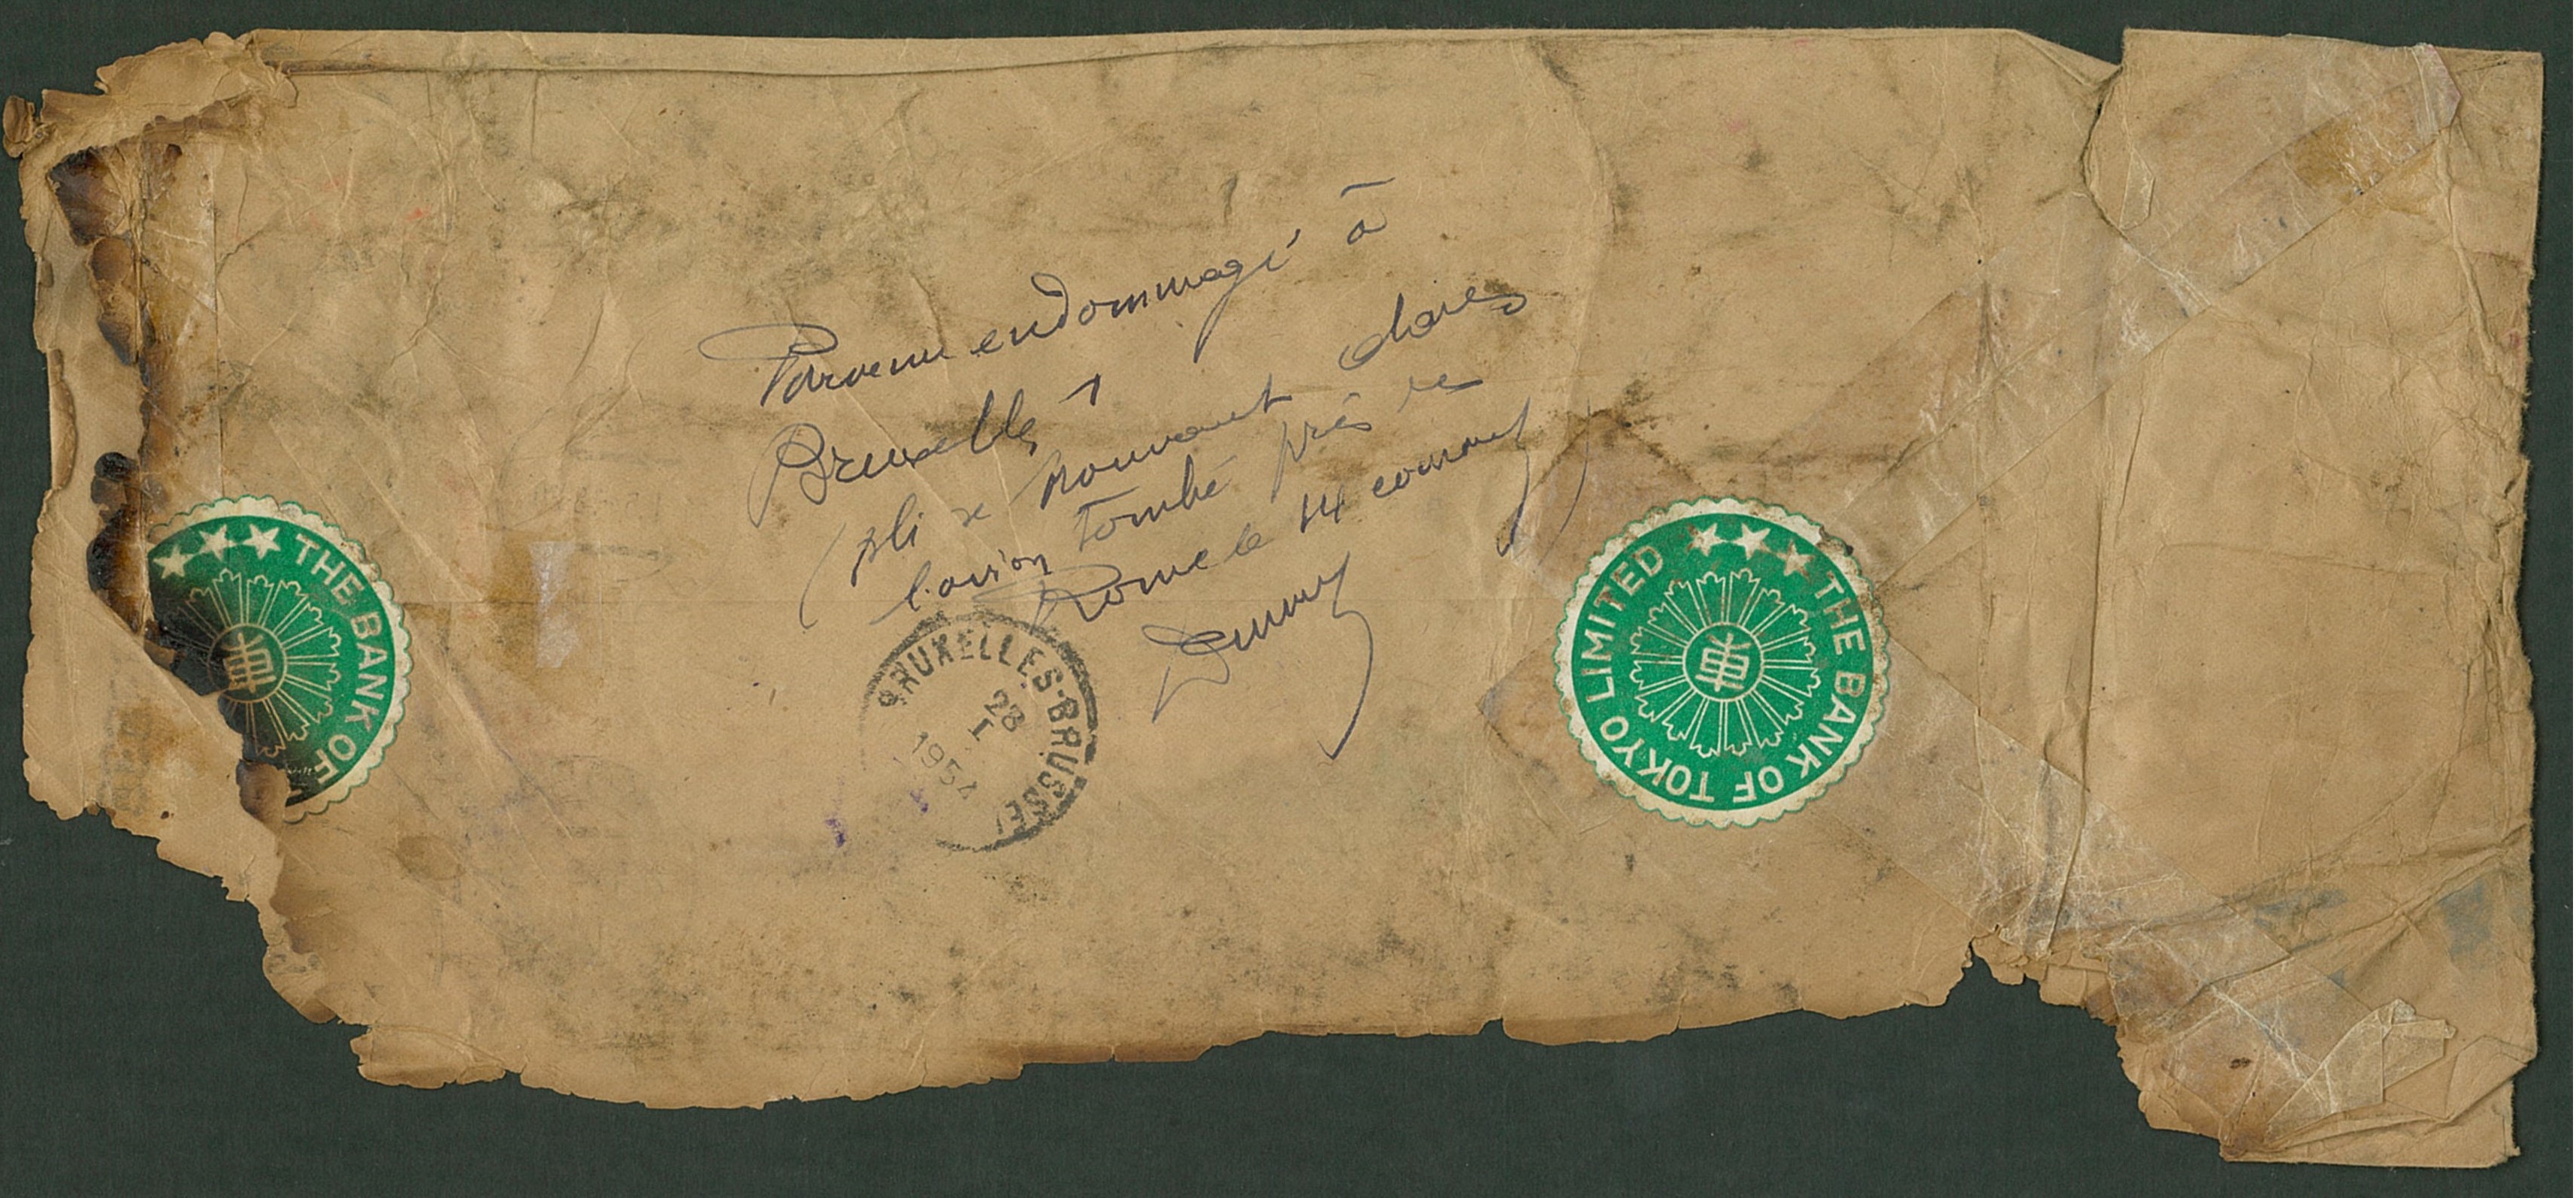 Parvenu endommagé à
Bruxelles 1
(pli se trouvant dans
l'avion tombé près de
Rome le 14 courant)
BRUXELLES-BRUSSEL
28
I
1954
★★★ THE BANK OF
東
★★★ THE BANK OF TOKYO LIMITED
東